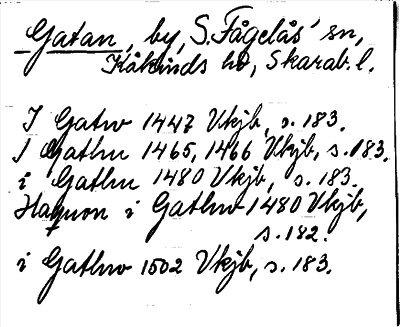 Gatan, by, S. Fågelås' sn,
Kåkinds hd, Skarab. l.
I Gatw 1447 Vkjb, s. 183.
I Gathn 1465, 1466 Vkjb, s. 183.
i Gathn 1480 Vkjb, s. 183.
Haqwon i Gathw 1480 Vkjb,
s. 182.
i Gathw 1502 Vkjb, s. 183.